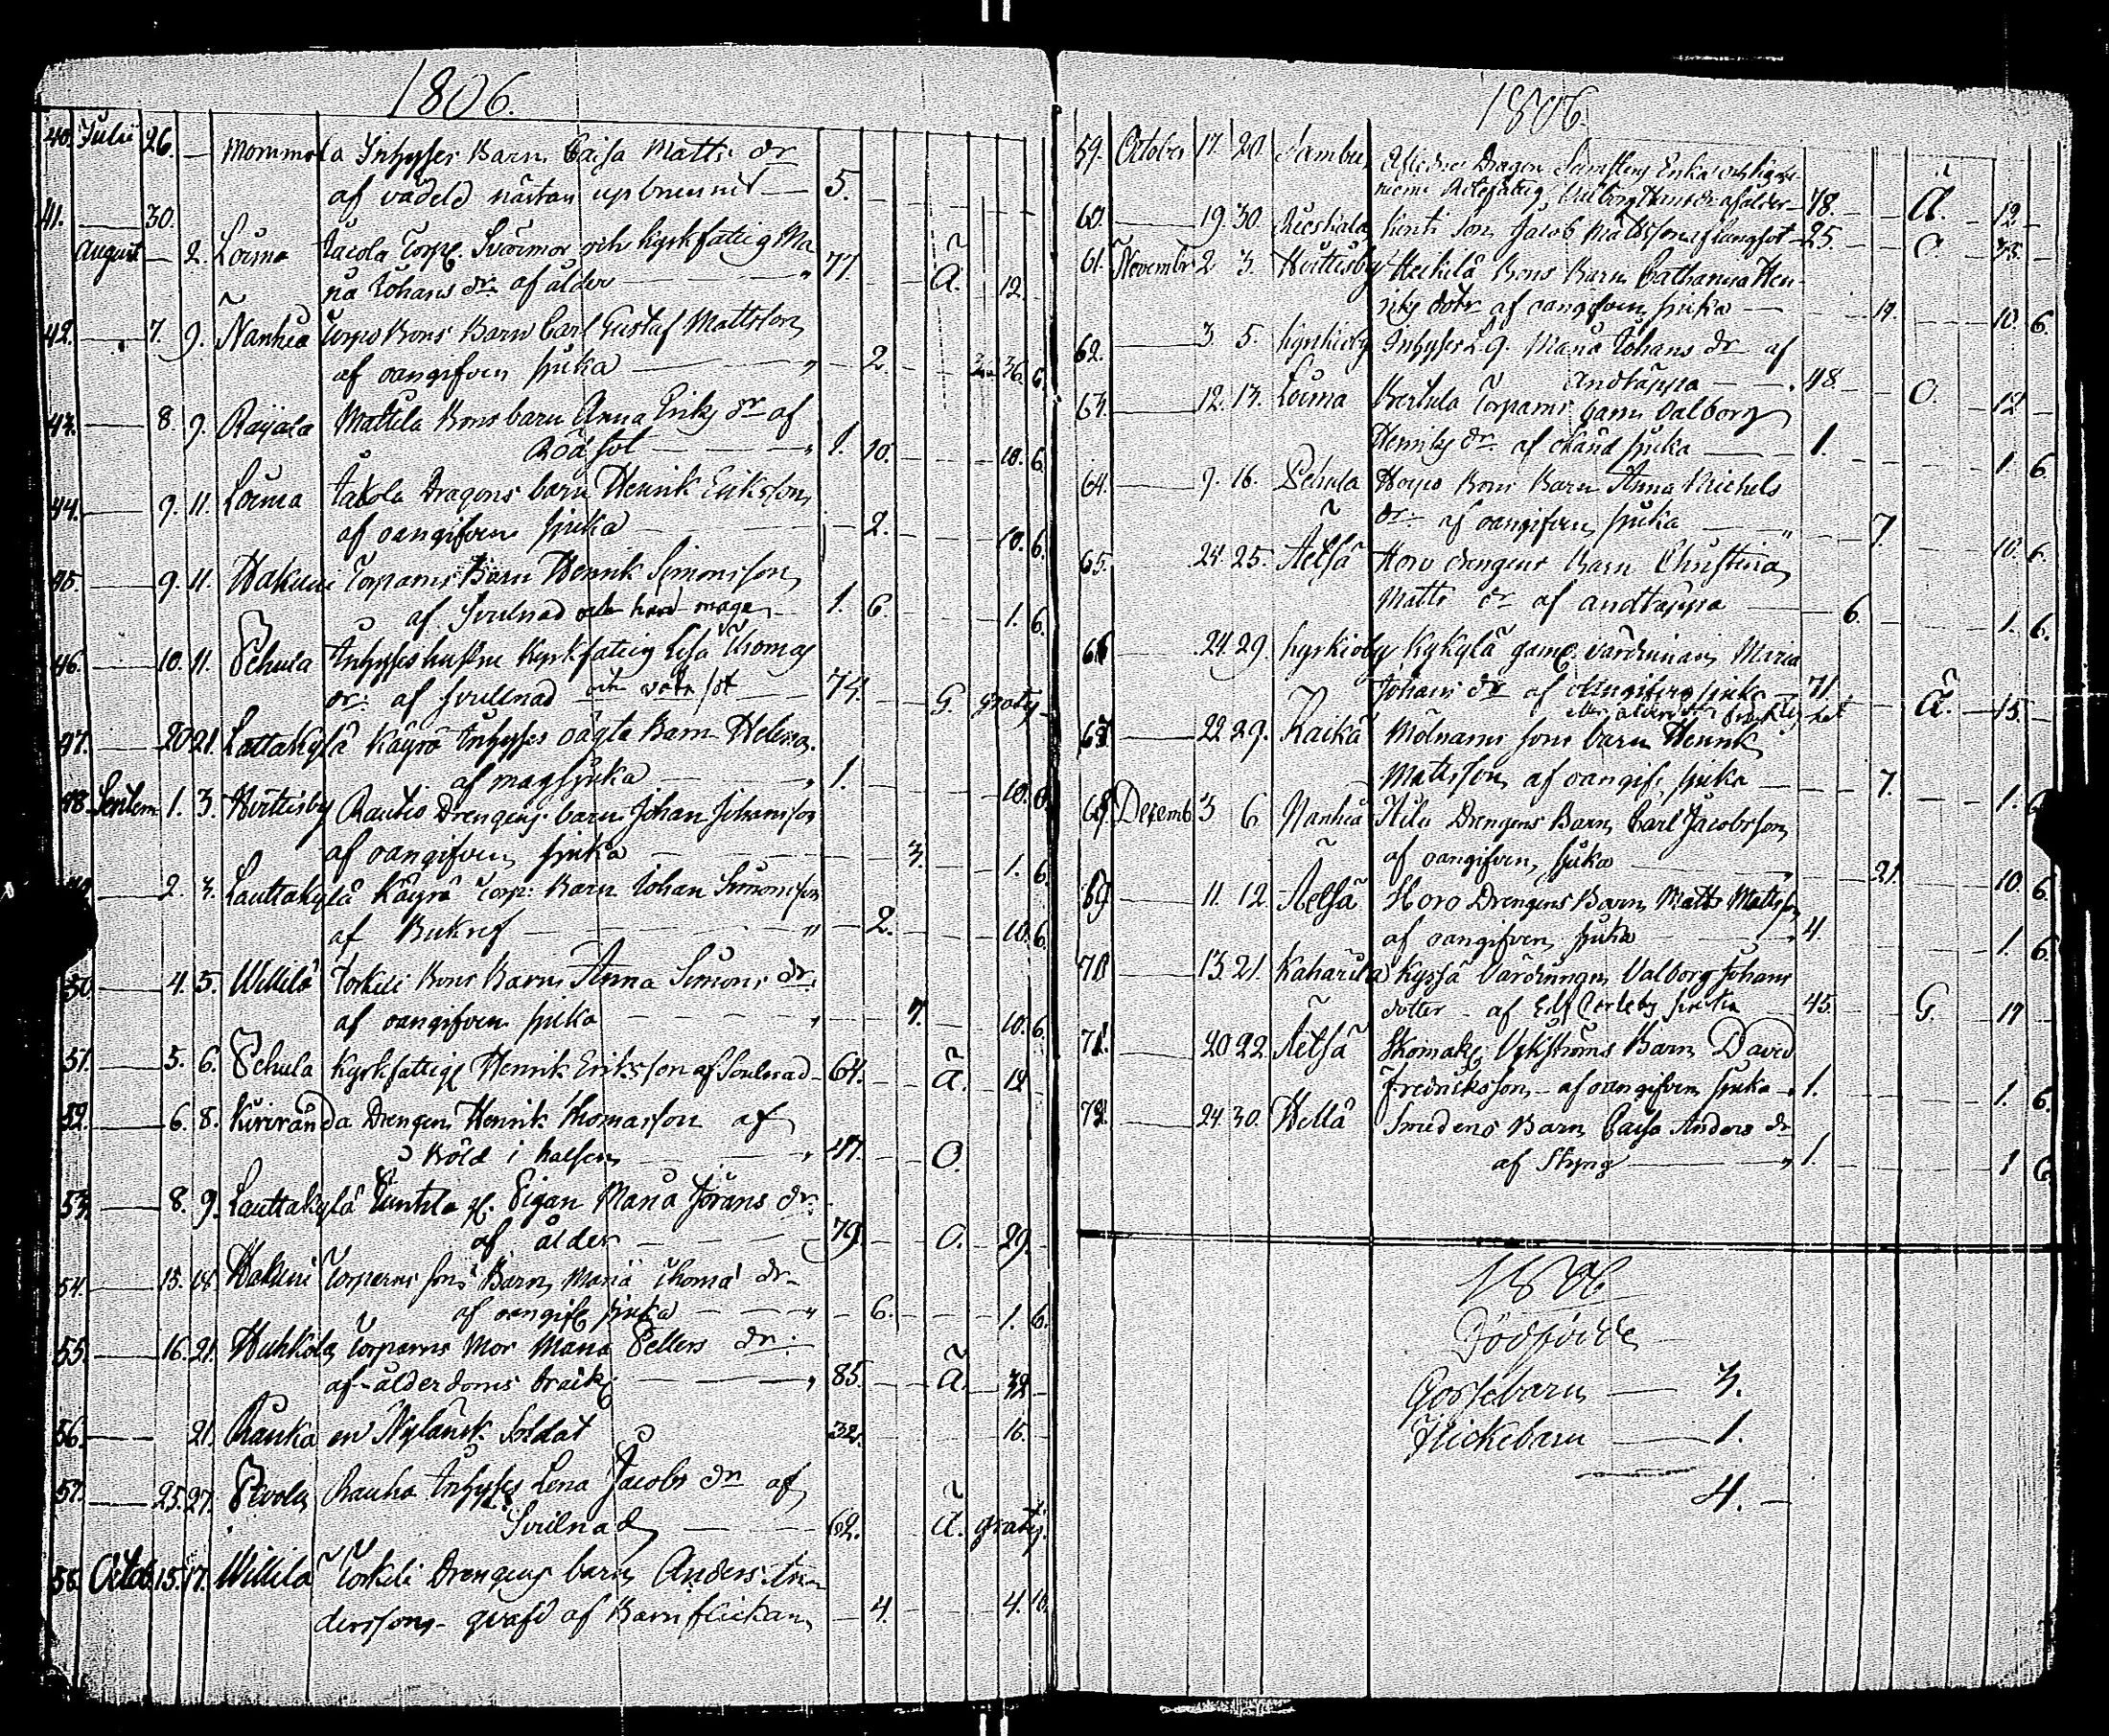 1806.
40. Julii 26. — Mommola Inhyses Barn Caisa Matts dr
af vådeld nästan upbrunnit — 5.
41. — 30.
August — 2. Loima Jacola Torp. Svärmor och kyrkfattig Ma
ria Johans dr. af ålder — " 77 Ä. 12.
42. — 7. 9. Nanhia Torpo Bons Barn Carl Gustaf Mattsson
af oangifven sjuka — " 2. 36. 6.
43. — 8. 9. Raijala Mattila Bons barn Anna Eriks dr af
Rödsot — " 1. 10. 10. 6.
44. — 9. 11. Loima Jakola Dragons barn Henrik Eriksson
af oangifven sjuka — 2. 10. 6.
45. — 9. 11. Hakuni Torpares Barn Henrik Simonsson
af Svulnad och hård mage — 1. 6. 1. 6.
46. — 10. 11. Pehula Inhyses hustru kyrkfattig Lisa Thomas
dr: af svullnad och vatnsot — 74. G. gratis
47. — 20 21. Lattakylä Käyrä Inhyses oägta Barn Helena
af magsjuka — " 1. 10. 6.
48. Septem 1. 3. Hvittisby Rautio Drengens barn Johan Johansson
af oangifven sjuka — 3. 1. 6.
2. 3. Lauttakylä Käyrä Torp: Barn Johan Simonsson
af Bukref — " 2. 10. 6.
50. — 4. 5. Willilä Torkili Bons Barn Anna Simons dr.
af oangifven sjuka — " 7. 10. 6.
51. — 5. 6. Pehula Kyrkfattige Henrik Eriksson af Svulnad — 64. Ä. 12
52. — 6. 8. Kiviranda Drengen Henrik Thomasson af
Böld i halsen — " 47. O.
53. — 8. 9. Lauttakylä Punkla gl. Pigan Maria Jörans dr.
af ålder — 79. O. 29.
54. — 15. 18. Hakuni Torparens sons Barn Maria Thomas dr
af oangif. sjuka — " 6. 1. 6.
55. — 16. 21. Huhkola Torparens Mor Maria Pellers dr:
af ålderdoms bräck. — " 85. Ä. 32
56. — 21. Ranka en Nylänsk Soldat 32. 16.
57. — 25. 27. Pevola Rauha Inhyses Lena Jacobs dr af
Svulnad — 62. Ä. gratis.
58. Octob. 15. 17. Willilä Torkili Drengens barn Anders An
dersson qväfd af Barnflickan — 4. 4. 16.
1806.
59. October 17. 20. Sambu Afledne Dragon Enka
ålder 78. Ä. 12
60. — 19. 30. Jacob Mattsson af lungsot — 25. O. 35
61. Novembr 2 3. Hvittisby Heikilä Bons Barn Catharina Hen
riks dotr af oangifven sjuka — 10. 6.
62. — 3. 5. Kyrkioby Inhyses Maria Johans dr af
Andtäppa — 48 O. 12
63. — 12. 13. Loima Bertula Torpares barn Valborg
Henriks dr. af okänd sjuka — 1. 1. 6.
64. — 9. 16. Pehula Bons Barn Anna Michels
dr. af oangifven sjuka — " 7. 10. 6.
65. — 24. 25. Äetsä Horo drengens Barn Christina
Matts dr af andtäppa — 6. 1. 6.
66 — 24. 29. Kyrkioby Kykylä gaml. värdinnan Maria
Johans dr af oangifven sjuka — 71. Ä. 15.
67 — 22 29. Raikä Mölnarens sons barn Henrik
Matsson af oangif. sjuka — 7. 1. 6
68. Decemb. 3 6. Nanhia Drengens Barn Carl Jacobsson
af oangifven sjuka — " 21. 10. 6.
69 — 11. 12. Äetsä Horo Drengens Barn Matts Mattsson
af oangifven sjuka — 4. 1. 6.
70 — 13. 21. Kaharila Kyssä Värdinnan Valborg Johans
dotter — af sjuka 45. G. 17
71. — 20 22. Äetsä Skomak. Barn David
Fredriksson — af oangifven sjuka — 1. 1. 6.
72. — 24. 30. Wellä Smedens Barn Caisa Anders dr
af Styng — " 1. 1 6
1806
Dödfödde
Gossebarn — 3.
Flickebarn — 1.
4. —